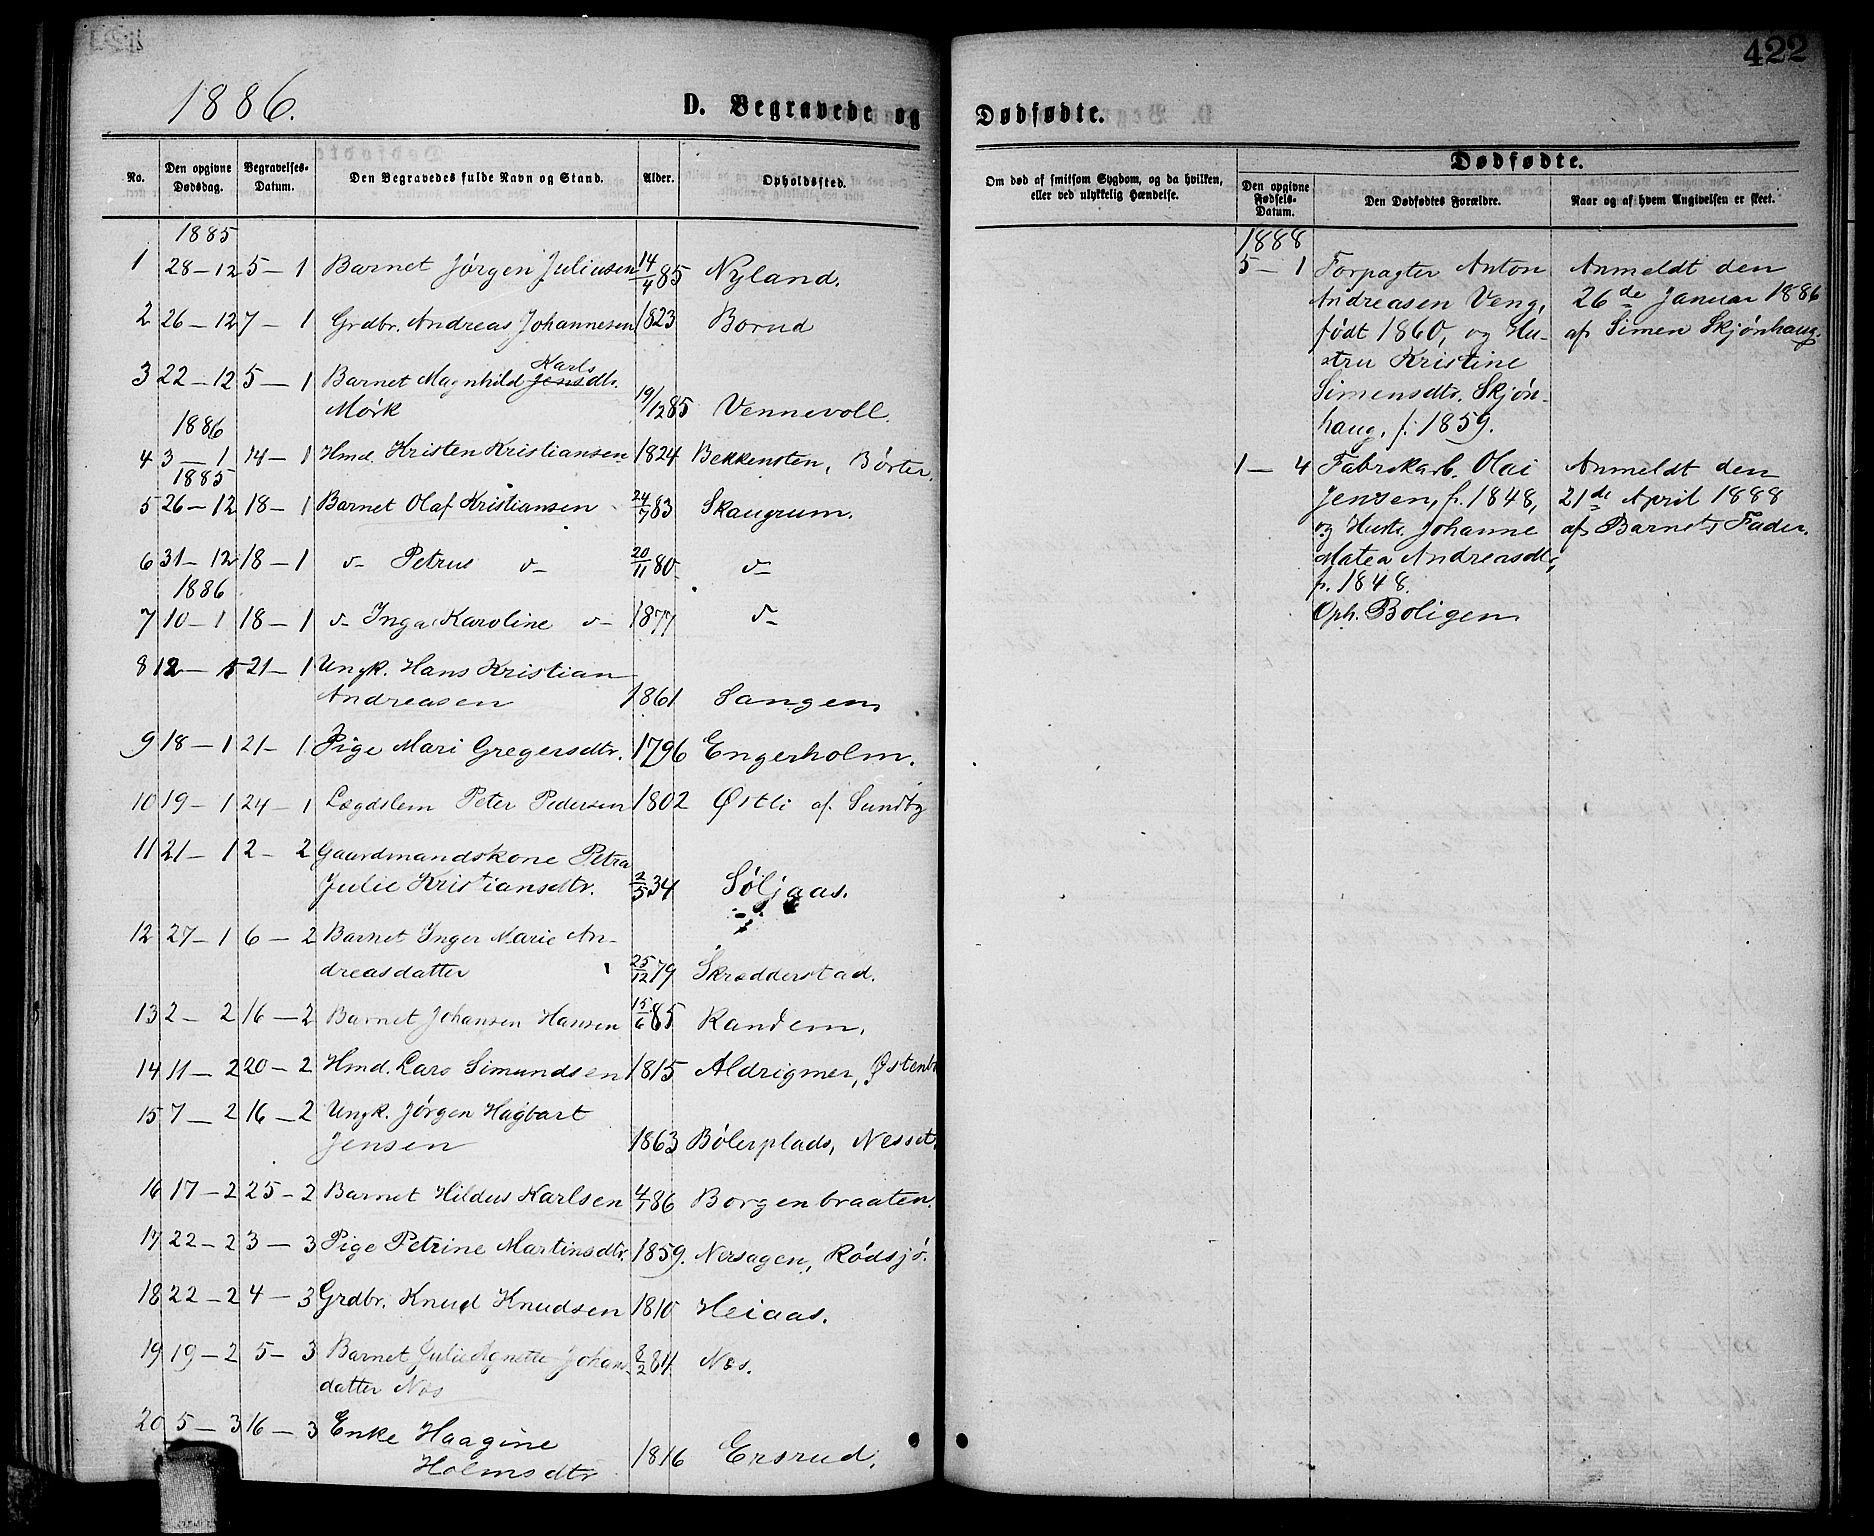 422
1886.
D. Begravede og Dødfødte.
No.
Den opgivne Dødsdag.
Begravelses-Datum.
Den Begravedes fulde Navn og Stand.
Alder.
Opholdssted.
Om død af smitsom Sygdom, og da hvilken, eller ved ulykkelig Hændelse.
Dødfødte.
Den opgivne Fødsels-Datum.
Den Dødfødtes Forældre.
Naar og af hvem Angivelsen er skeet.
1885
1 28-12 5-1 Barnet Jørgen Juliusen 14/4 85 Nyland.
2 26-12 7-1 Grdbr. Andreas Johannesen 1823 Borud
Karls
3 22-12 5-1 Barnet Magnhild Jensdtr.
Mørk 19/12 85 Vennevoll.
1886
4 3-1 14-1 Hmd. Kristen Kristiansen 1824 Bekkensten, Børter.
1885
5 26-12 18-1 Barnet Olaf Kristiansen 24/7 83 Skaugrum.
6 31-12 18-1 v- Petrus v- 20/11 80 v-
1886
7 10-1 18-1 v- Inga Karoline v- 1877 v-
8 12-1 21-1 Ungk. Hans Kristian
Andreasen 1861 Sangen
9 18-1 21-1 Pige Mari Gregersdtr. 1796 Engerholm.
10 19-1 24-1 Lægdslem Peter Pedersen 1802 Østli af Sundby
11 21-1 2-2 Gaardmandskone Petra
Julie Kristiansdtr. 2/5 34 Søljaas.
12 27-1 6-2 Barnet Inger Marie An-
dreasdatter 25/12 79 Skrædderstad.
13 2-2 16-2 Barnet Johansen Hansen 15/6 85 Randem.
14 11-2 20-2 Hmd. Lars Simundsen 1815 Aldrigmer,
15 7-2 16-2 Ungk. Jørgen Hagbart
Jensen 1863 Bølerplads, Nesset.
16 17-2 25-2 Barnet Hildus Karlsen 4/1 86 Borgenbraaten.
17 22-2 3-3 Pige Petrine Martinsdtr. 1859. Nersagen, Rødsjø.
18 22-2 4-3 Grdbr. Knud Knudsen 1810 Heiaas.
19 19-2 5-3 Barnet Julie Agnette Johans-
datter Næs 8/2 84. Næs.
20 5-3 16-3 Enke Haagine
Holmsdtr 1816 Ersrud.
1888
5-1 Forpagter Anton
Andreasen Veng,
født 1860, og Hu-
stru Kristine
Simensdtr. Skjøn-
haug, f. 1859.
Anmeldt den
26de Januar 1886
af Simen Skjønhaug.
1-4 Fabrikarb. Olai
Jensen, f. 1848,
og Hustr. Johanne
Matea Andreasdtr,
f. 1848.
Oph. Boligen
Anmeldt den
21de April 1888
af Barnets Fader.